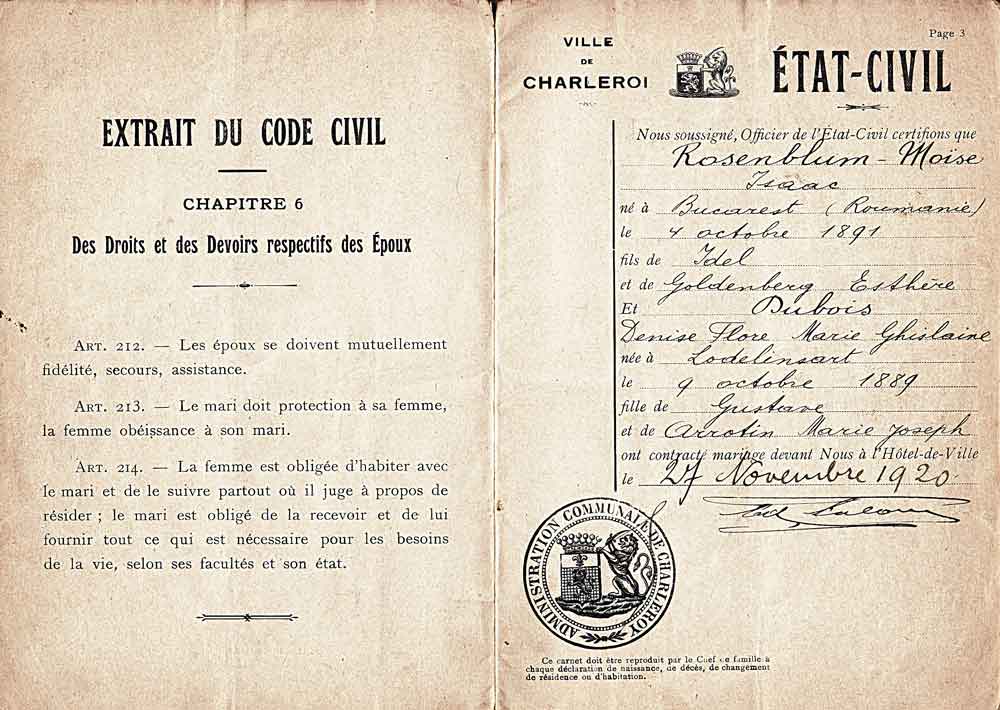 EXTRAIT DU CODE CIVIL
CHAPITRE 6
Des Droits et des Devoirs respectifs des Époux
ART. 212. — Les époux se doivent mutuellement
fidélité, secours, assistance.
ART. 213. — Le mari doit protection à sa femme,
la femme obéissance à son mari.
ART. 214. — La femme est obligée d'habiter avec
le mari et de le suivre partout où il juge à propos de
résider ; le mari est obligé de la recevoir et de lui
fournir tout ce qui est nécessaire pour les besoins
de la vie, selon ses facultés et son état.
Page 3
VILLE
DE
CHARLEROI
ÉTAT-CIVIL
Nous soussigné, Officier de l'État-Civil certifions que
Rosenblum - Moïse
Isaac
né à Bucarest (Roumanie)
le 4 octobre 1891
fils de Idel
et de Goldenberg Esthère
Et Dubois
Denise Flore Marie Ghislaine
née à Lodelinsart
le 9 octobre 1889
fille de Gustave
et de Arrotin Marie Joseph
ont contracté mariage devant Nous à l'Hôtel-de-Ville
le 27 Novembre 1920
ADMINISTRATION COMMUNALE DE CHARLEROY
Ce carnet doit être reproduit par le Chef de famille à
chaque déclaration de naissance, de décès, de changement
de résidence ou d'habitation.